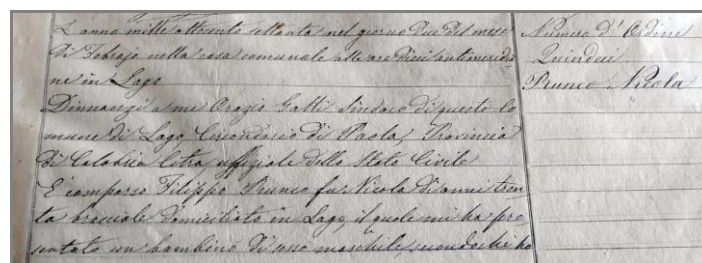 L'anno mille ottocento settanta nel giorno due del mese
di Febrajo nella casa comunale alle ore dieci antimeridia
ne in Lago
Dinnanzi a me Orazio Gatti Sindaco di questo Co
mune di Lago Circondario di Paola, Provincia
di Calabria Citra, uffiziale dello Stato Civile
È comparso Filippo Prunco fu Nicola di anni tren
ta bracciale domiciliato in Lago, il quale mi ha pre
sentato un bambino di sesso maschile, secondochè ho
Numero d'Ordine
Quindici
Prunco Nicola